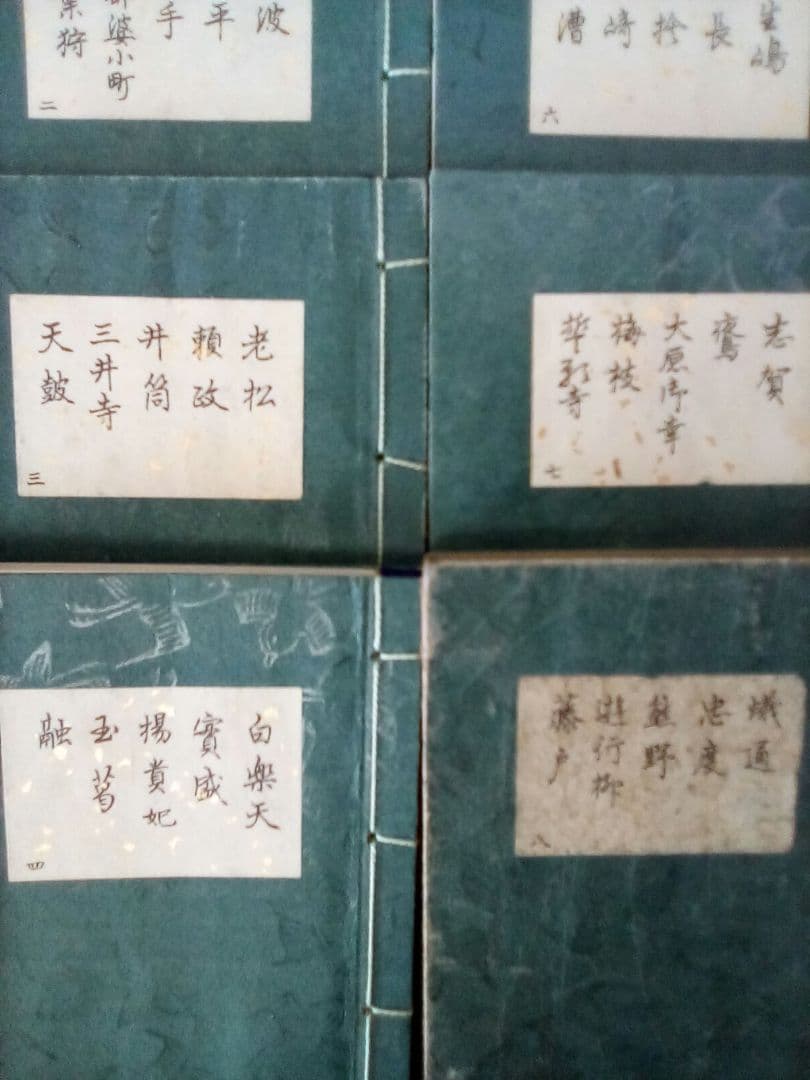 波
平
手
婆小町
狩
二
生嶋
長
崎
漕
六
老松
賴政
井筒
三井寺
天皷
三
志賀
大原御幸
梅枝
寺
七
白樂天
實盛
楊貴妃
玉葛
融
四
蟻通
忠度
熊野
遊行柳
藤戸
八